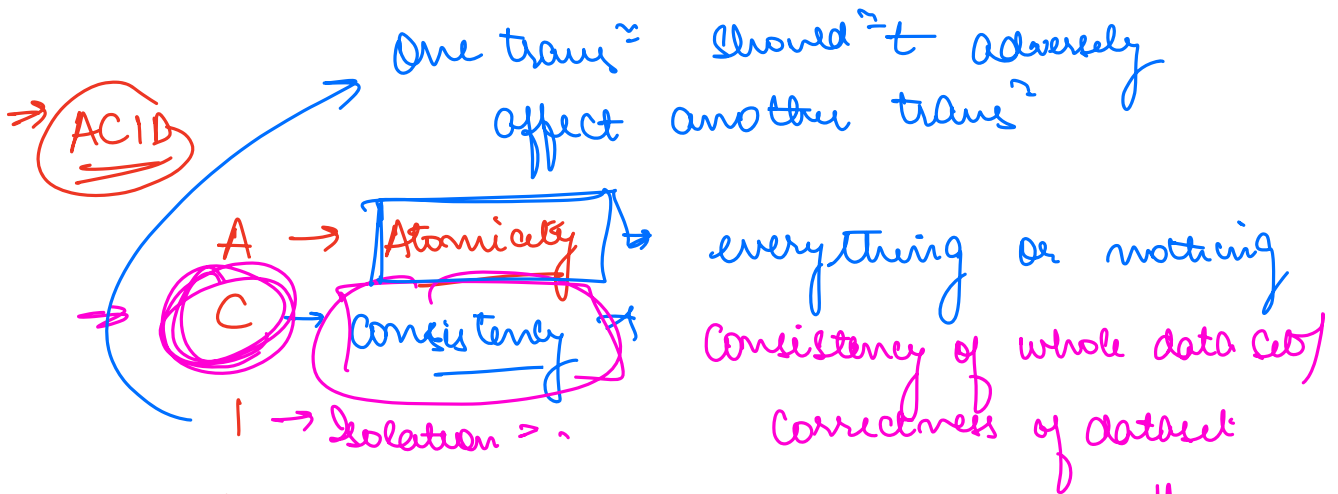 One transⁿ shouldn't adversely
affect another transⁿ
→ ACID
A → Atomicity → everything or nothing
→ C → Consistency → Consistency of whole data set/
Correctness of dataset
I → Isolation